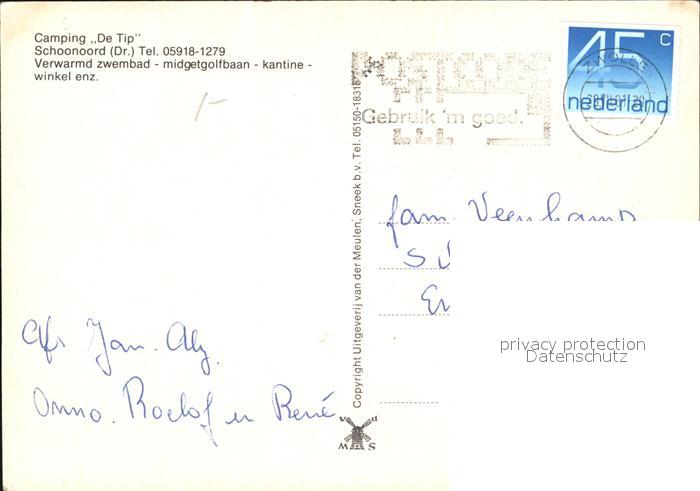 Camping „De Tip"
Schoonoord (Dr.) Tel. 05918-1279
Verwarmd zwembad - midgetgolfbaan - kantine -
winkel enz.
POSTCODE
PTT
Gebruik 'm goed.
45 c
nederland
ZWOLLE
Copyright Uitgeverij van der Meulen, Sneek b.v. Tel. 05150-18315
fam. Veenkamp
Afz Jan. Aly.
Onno. Roelof en René
privacy protection
Datenschutz
v d
M S